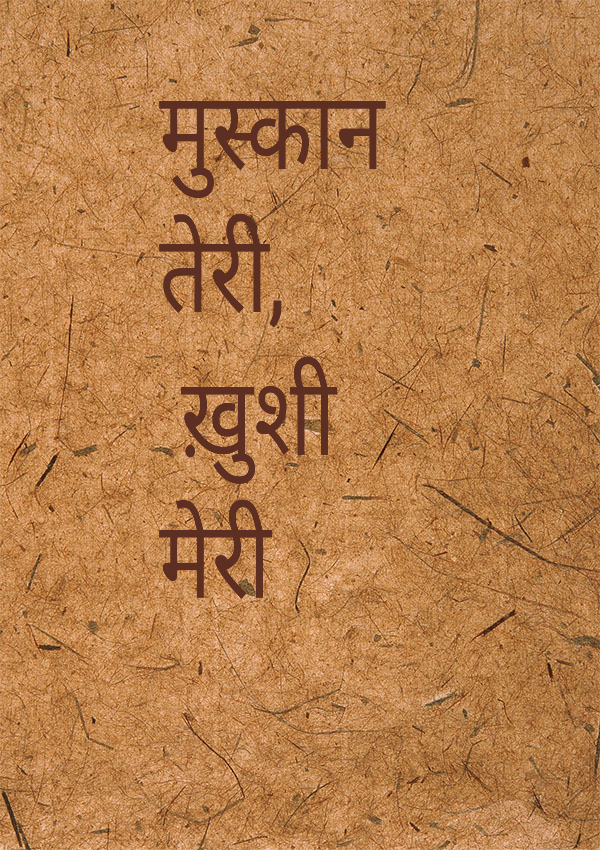 मुस्कान
तेरी,
ख़ुशी
मेरी